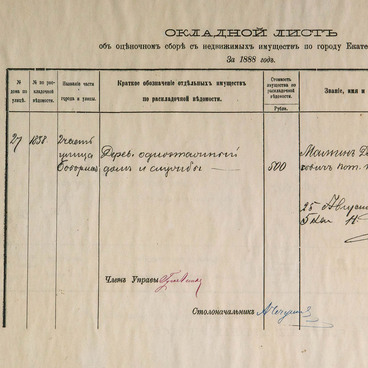 ОКЛАДНОЙ ЛИСТЪ
объ оцѣночномъ сборѣ съ недвижимыхъ имуществъ по городу Екате
За 1888 годъ.
№ дома по улицѣ.
№ по раскладочной вѣдомости.
Названіе части города и улицы.
Краткое обозначеніе отдѣльныхъ имуществъ по раскладочной вѣдомости.
Стоимость имущества по раскладочной вѣдомости.
Рубли.
Званіе, имя и
27
1858.
2 часть
улица
Соборная
Дерев. одноэтажный
домъ и службы
500
Маминъ
25 Августа
Члены Управы
Столоначальникъ